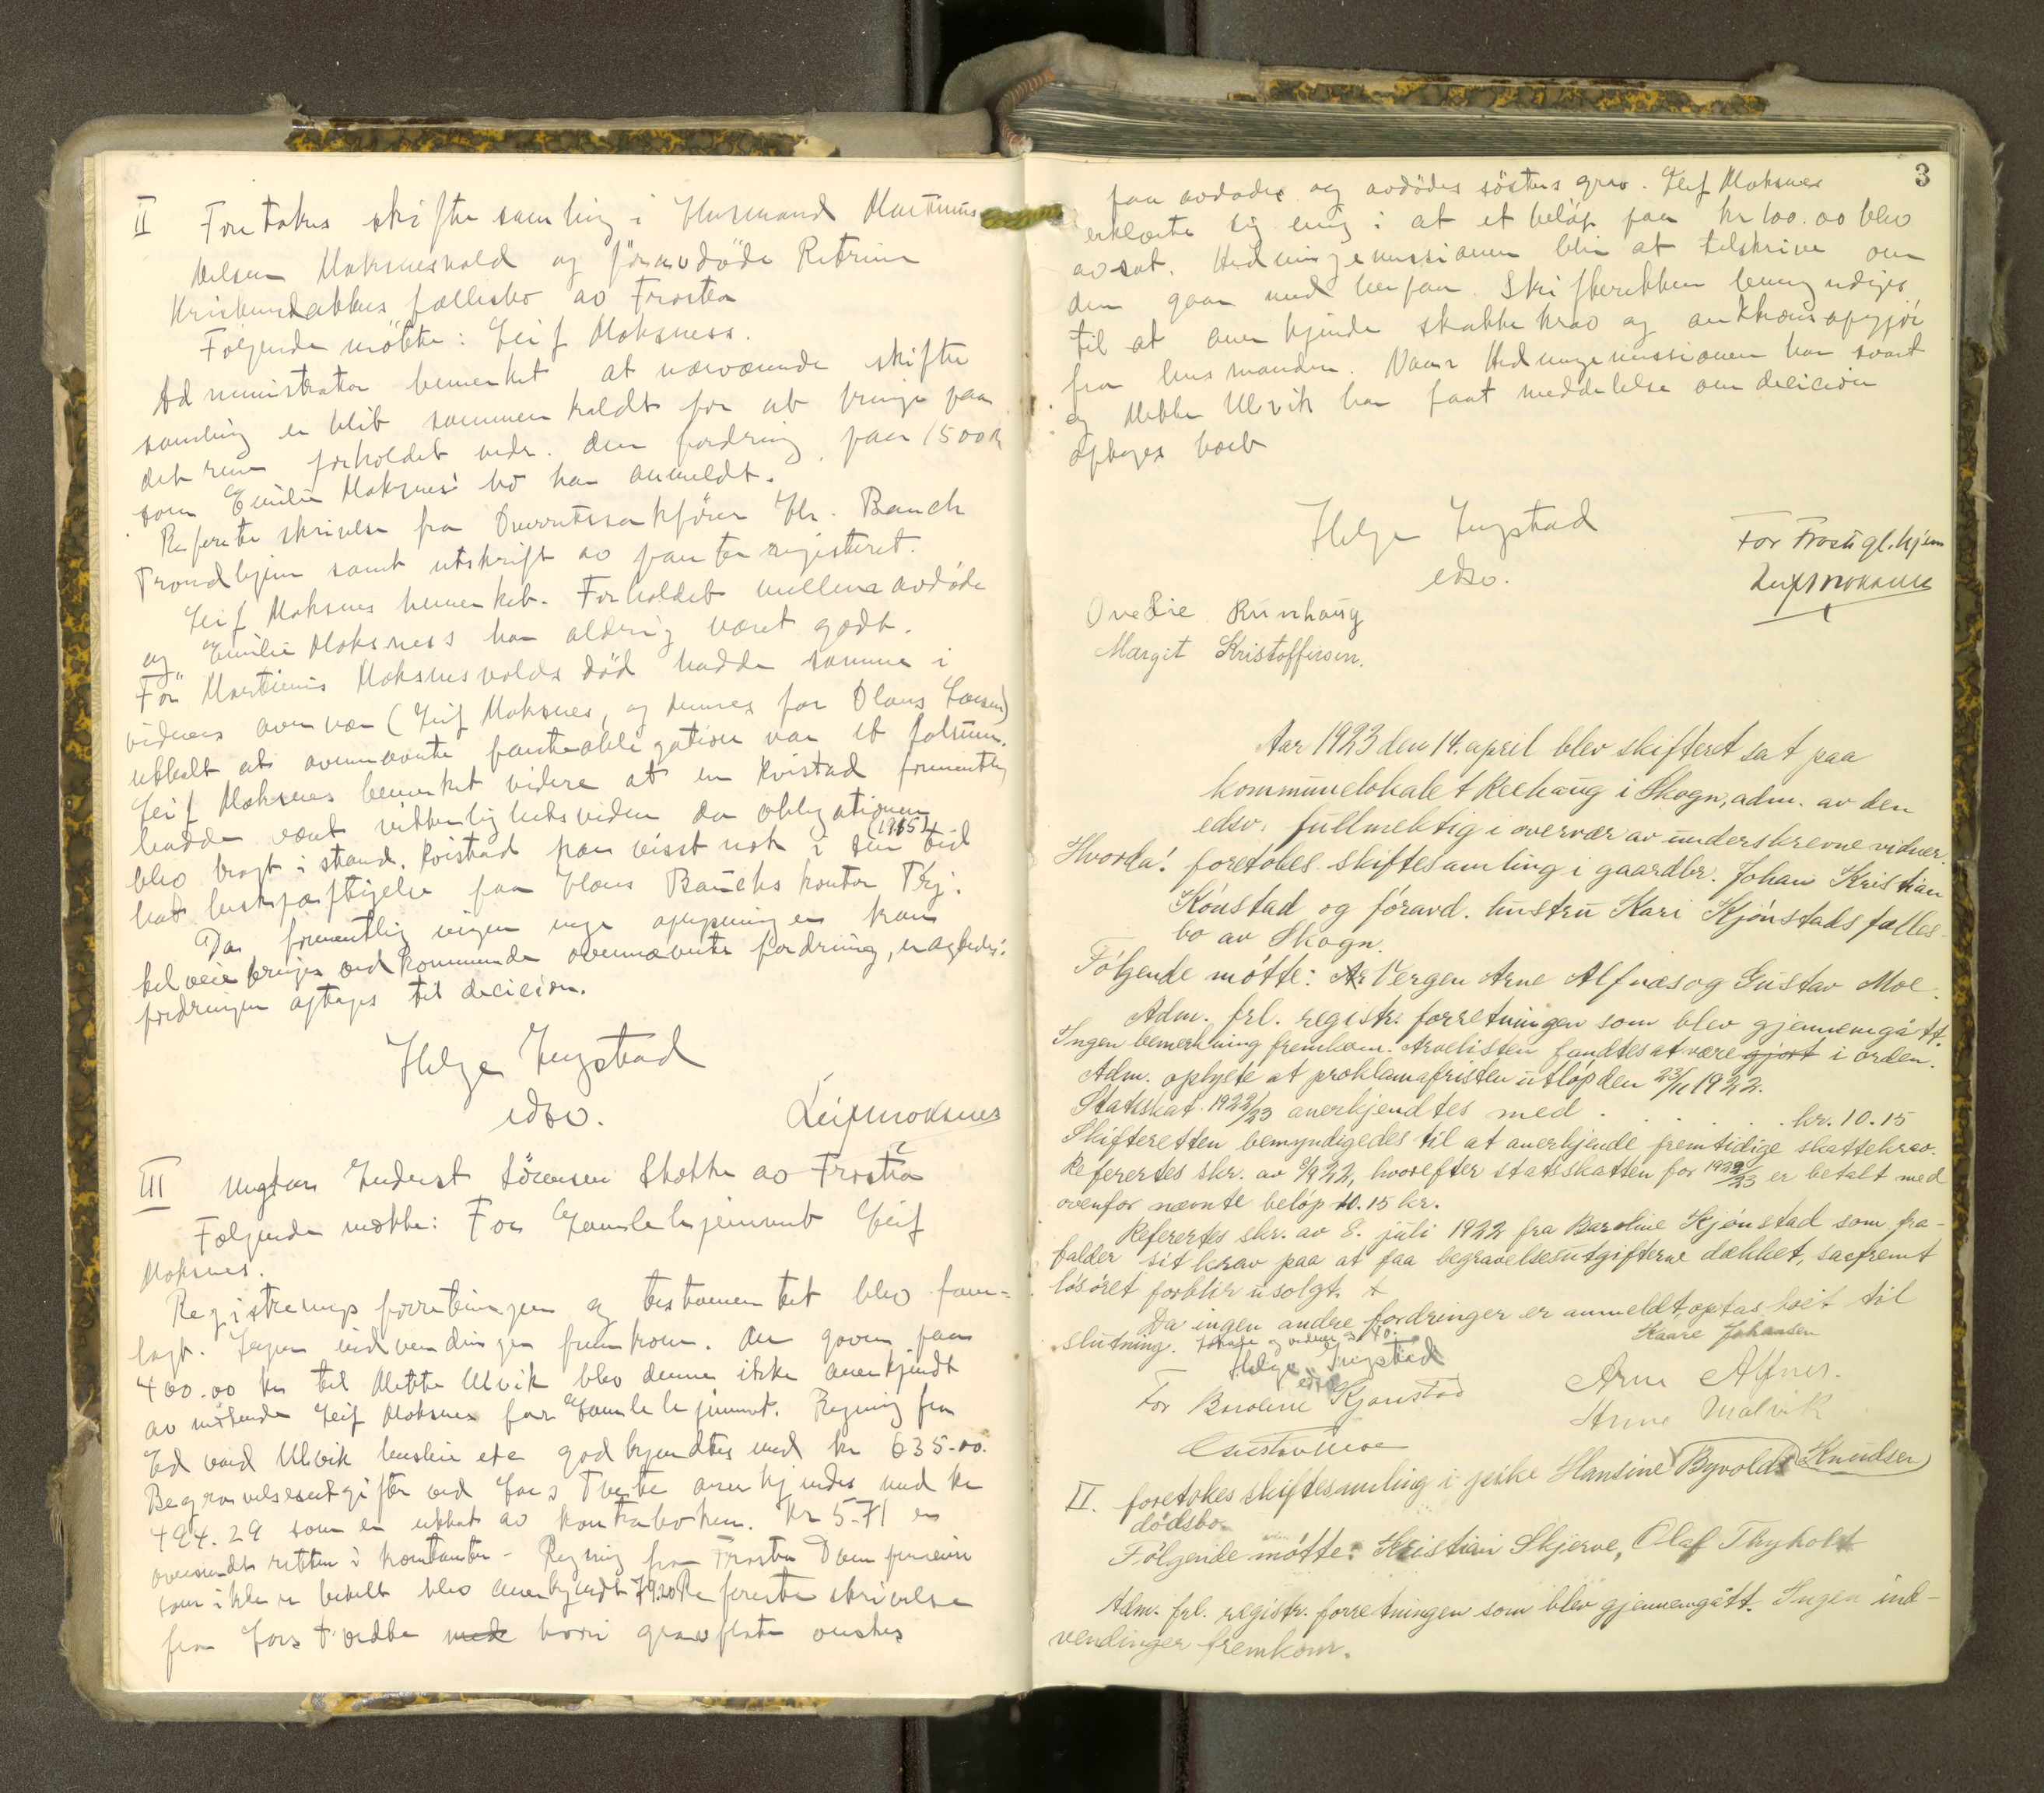 II Foretokes skiftesamling i Husmand Martinus
Nelsen Moksnesvald og føravdøde Petrine
Kristensdatters fællesbo av Frosta
Følgende møtte: Leif Moksness.
Administrator bemerket at nærværende skifte
samling er blit sammenkaldt for at bringe paa
det rene forholdet vedr. den fordring paa 1500 kr
som Emilie Moksnes' bo har anmeldt.
Referete skrivelse fra Overretssakfører Hr. Bauck
Trondhjem samt utskrift av panteregisteret.
Leif Moksnes bemerket. Forholdet mellem avdøde
og Emilie Moksness har aldrig været godt.
Før Martinus Moksnesvolds død hadde samme i
vidners overvær (Leif Moksnes, og dennes far Olaus Larsen)
uttalt at ovennævnte panteobligation var et falsum.
Leif Moksnes bemerket videre at en Kvistad formentlig
hadde været vitterlighetsvidne da obligationen
blev bragt i stand. Kvistad har visst nok i sin tid (1915)
hat beskjæftigelse paa Hans Baucks kontor Trhj.
Da formentlig ingen nye oplysninger kan
tilveiebringes vedkommende ovennævnte fordring,
fordringen optages til decision.
Helge Ingstad
edsv.
Leif Moksnes
III Ungkar Inderst Sørensen Skatte av Frosta
Følgende møtte: For Gamlehjemmet Leif
Moksnes.
Registreringsforretningen og testamentet blev frem-
lagt. Ingen indvendinger fremkom. Av gaven paa
400.00 kr til Mette Ulvik blev denne ikke anerkjendt
av møtende Leif Moksnes for Gamlehjemmet. Regning fra
Edvard Ulvik husleie etc godkjendtes med kr 635.00.
Begravelsesutgifter ved Lars Tvete anerkjendes med kr
494.29 som er uttat av kontraboken. Kr 5.71 er
oversendt retten i kontanter - Regning fra Frosta
som ikke er betalt blev anerkjendt Referertes skrivelse
fra Lars med hvori gravflate ønskes
3
paa avdødes og avdødes søsters grav. Leif Moksnes
erklærte sig enig i at et beløp paa kr 100.00 blev
avsat. Hedningemissionen blir at tilskrive om
den gaar med herpaa. Skifteretten bemyndiges
til at anerkjende skattekrav og
fra lensmanden. Naar Hedningemissionen har svart
og Mette Ulvik har faat meddelelse om decision
optages boet
Helge Ingstad
edsv.
For Frosta gl.hjem
Leif Moksnes
Ovedie Rinnhaug
Margit Kristoffersen.
Aar 1923 den 14. april blev skifteret sat paa
kommunelokalet Reehaug i Skogn, adm. av den
edsv. fullmektig i overvær av underskrevne vidner.
Hvorda! foretokes skiftesamling i gaardbr. Johan Kristian
Kønstad og føravd. hustru Kari Kjønstads fælles-
bo av Skogn.
Følgende møtte: Vergen Arne Alfnæs og Gustav Moe.
Adm. frl. registr. forretningen som blev gjennemgått.
Ingen bemerkning fremkom. Arvelisten fandtes at være gjort i orden.
Adm. oplyste at proklamafristen utløp den 23/11 1922.
Statsskat 1922/23 anerkjendtes med . . . . . kr. 10.15
Skifteretten bemyndigedes til at anerkjende fremtidige skattekrav.
Referertes skr. av 9/9 22, hvorefter statsskatten for 1922/23 er betalt med
ovenfor nævnte beløp 10.15 kr.
Referertes skr. av 8. juli 1922 fra Baroline Kjønstad som fra-
falder sit krav paa at faa begravelsesutgifterne dækket, saafremt
løsøret forblir usolgt.
Da ingen andre fordringer er anmeldt, optas boet til
slutning.
Kaare Johansen
Helge Ingstad
edsv.
Arne Alfnes.
For Baroline Kjønstad
Arne Malvik
Gustav Moe
II. foretokes skiftesamling i pike Hansine Byvolds Knudsen
dødsbo.
Følgende møtte: Kristian Skjerve, Olaf Thyholt
Adm. frl. registr. forretningen som blev gjennemgått. Ingen ind-
vendinger fremkom.